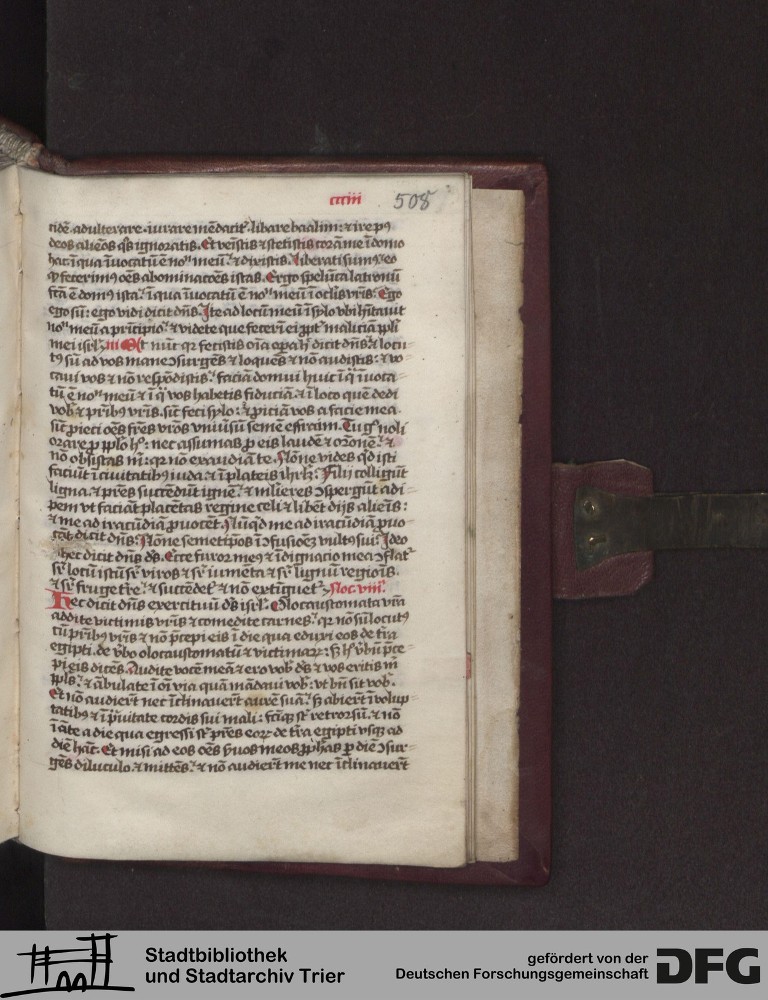 cciii 508
cidē. adulterare. iurare mēdacit᷑. libare baalim: ⁊ ire pꝰ
deos aliēos q̄s ignoratis. Et veīstis ⁊ stetistis corā me ī domo
hac ī qua īuocatū ē noᵐ meū ⁊ dixistis. liberati sumꝰ eo
ꝙ fecerimꝰ oēs abominacōes istas. Ergo spelūca latronū
fcā ē domꝰ ista. ī qua īuocatū ē noᵐ meū ī oclīs vr̄is. Ego
ego sū: ego vidi dicit dn̄s. Ite ad locū meū ī sylo vbi hītauit
noᵐ meū a prīcipio ⁊ videte que fecerī ei ꝓpt̄ maliciā ppl̄i
mei isrl̄. Et nūc qr fecistis oīa dicit dn̄s ⁊ locu
tꝰ sū ad vos mane ↄsurgēs ⁊ loquēs ⁊ nō audistis. ⁊ vo
caui vos ⁊ nō respōdistis. faciā domui huic ī q̄ īuoca
tū ē noᵐ meū ⁊ ī q̄ vos habetis fiduciā. ⁊ ī loco quē dedi
vob̄ ⁊ prībꝰ vr̄is. sic̄ feci sylo: ⁊ ꝓiciā vos a facie mea.
sic̄ ꝓieci oēs fr̄es vr̄os vniuīsū semē effraim. Tu gͦ noli
orare ꝓ pplō hͦ: nec assumas ꝓ eis laudē ⁊ or̄onē. ⁊
nō obsistas m̄: qr nō exaudiā te. Nōne vides qͥd isti
faciūt ī ciuitatibꝰ iuda. ⁊ ī plateis ihrl̄m. Filij colligūt
ligna. ⁊ pr̄es succēdūt ignē. ⁊ mlīeres ↄspergūt adi
pem vt faciāt placētas regine celi ⁊ libēt dijs aliēis:
⁊ me ad iracūdiā ꝓuocēt. Nūqͥd me ad iracūdiā ꝓuo
cāt dicit dn̄s. Nōne semetip̄os ī ↄfusiōēz vultꝰ sui. Ideo
hec dicit dn̄s ds̄. Ecce furor meꝰ ⁊ īdignacio mea ↄflat᷑
sr̄ locū istū sr̄ viros ⁊ sr̄ iumēta ⁊ sr̄ lignū regiōis.
⁊ sr̄ fruge tr̄e. ⁊ succēdet᷑ ⁊ nō extīguet᷑.
Hec dicit dn̄s exercituū ds̄ isrl̄. Olocaustomata vr̄a
addite victimis vr̄is ⁊ comedite carnes. qr nō sū locutꝰ
cū prībꝰ vr̄is ⁊ nō p̄cepi eis ī die qua eduxi eos de tr̄a
egipti. de v̄bo olocaustomatū ⁊ victimaꝝ: sꝫ hͦ v̄bū p̄ce
pi eis dicēs. Audite vocē meā ⁊ ero vob̄ ds̄ ⁊ vos eritis m̄
ppls̄. ⁊ ābulate ī oī via quā mādaui vob̄: vt bn̄ sit vob̄.
Et nō audierūt nec īclinauerūt aurē suā. sꝫ abierūt ī volup
tatibꝰ ⁊ ī p̄uitate cordis sui mali: fctīqꝫ st̄ retrorsū. ⁊ nō
ī āte a die qua egressi st̄ pr̄es eoꝝ de tr̄a egipti vsqꝫ ad
diē hāc. Et misi ad eos oēs ẜuos meos ꝓphās ꝑ diē ↄsur
gēs diluculo. ⁊ mittēs. ⁊ nō audierūt me nec īclinauerūt
Stadtbibliothek
und Stadtarchiv Trier
gefördert von der
Deutschen Forschungsgemeinschaft
DFG